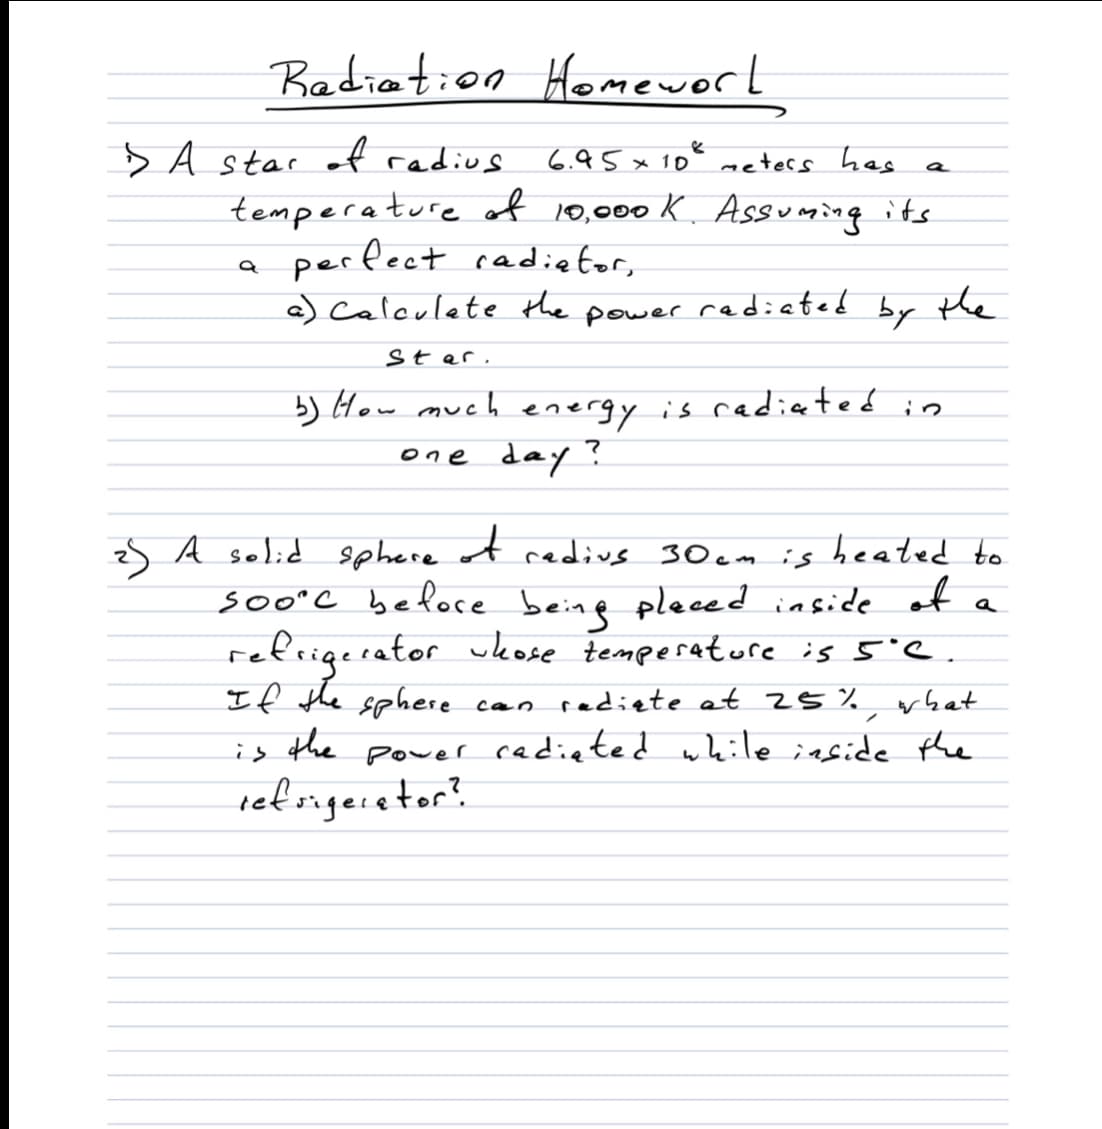 Radiation Homework
1) A star of radius 6.95 x 10⁸ meters has a
temperature of 10,000 K. Assuming its
a perfect radiator,
a) Calculate the power radiated by the
star.
b) How much energy is radiated in
one day?
2) A solid sphere of radius 30cm is heated to
500°C before being placed inside of a
refrigerator whose temperature is 5°C.
If the sphere can radiate at 25%, what
is the power radiated while inside the
refrigerator?